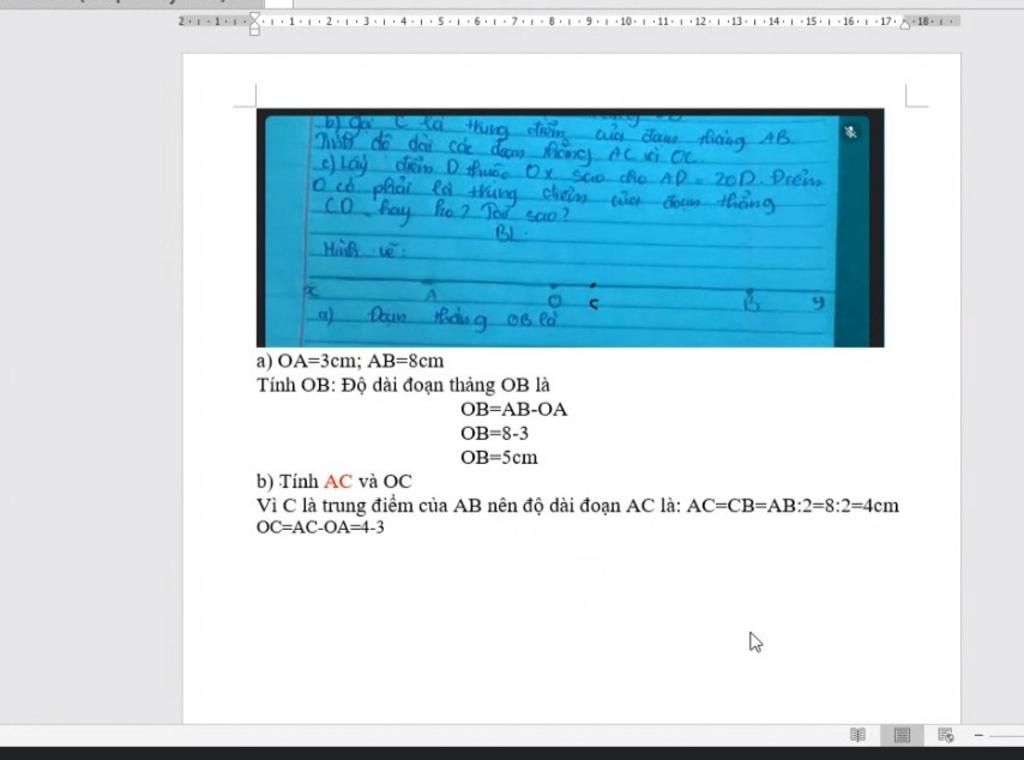 2 1 1 2 3 4 5 6 7 8 9 10 11 12 13 14 15 16 17 18
b) Gọi C là trung điểm của đoạn thẳng AB.
Tính độ dài các đoạn thẳng AC và OC.
c) Lấy điểm D thuộc Ox sao cho AD = 2OD. Điểm
O có phải là trung điểm của đoạn thẳng
CD hay ko? Tại sao?
BL
Hình vẽ:
x A O C B y
a) Đoạn thẳng OB là
a) OA=3cm; AB=8cm
Tính OB: Độ dài đoạn thảng OB là
OB=AB-OA
OB=8-3
OB=5cm
b) Tính AC và OC
Vì C là trung điểm của AB nên độ dài đoạn AC là: AC=CB=AB:2=8:2=4cm
OC=AC-OA=4-3